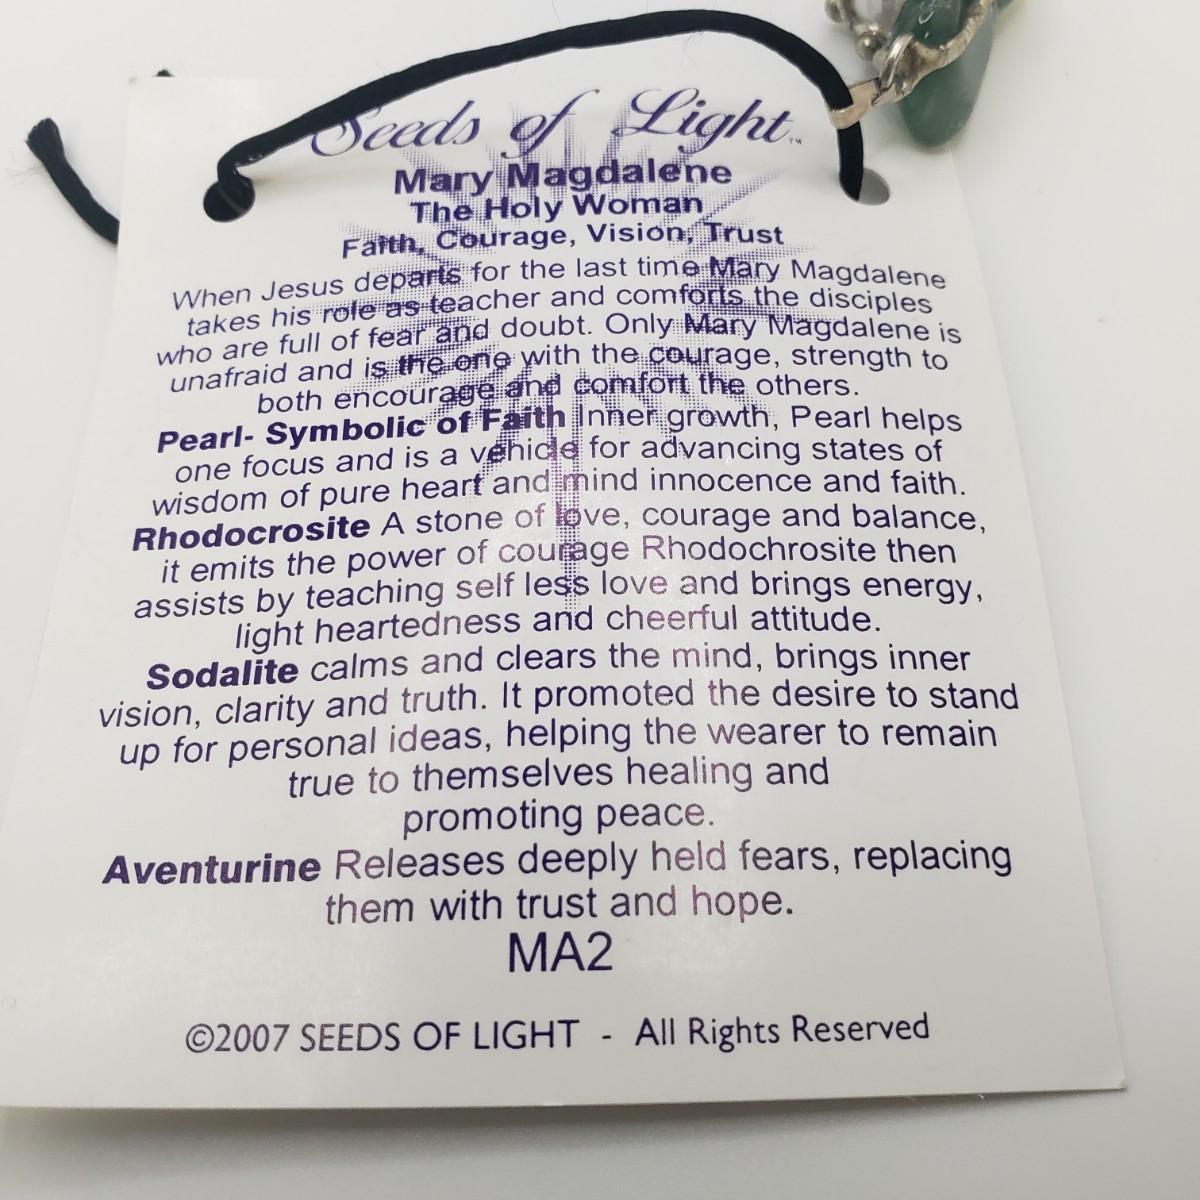 Seeds of Light™
Mary Magdalene
The Holy Woman
Faith, Courage, Vision, Trust
When Jesus departs for the last time Mary Magdalene
takes his role as teacher and comforts the disciples
who are full of fear and doubt. Only Mary Magdalene is
unafraid and is the one with the courage, strength to
both encourage and comfort the others.
Pearl- Symbolic of Faith Inner growth, Pearl helps
one focus and is a vehicle for advancing states of
wisdom of pure heart and mind innocence and faith.
Rhodocrosite A stone of love, courage and balance,
it emits the power of courage Rhodochrosite then
assists by teaching self less love and brings energy,
light heartedness and cheerful attitude.
Sodalite calms and clears the mind, brings inner
vision, clarity and truth. It promoted the desire to stand
up for personal ideas, helping the wearer to remain
true to themselves healing and
promoting peace.
Aventurine Releases deeply held fears, replacing
them with trust and hope.
MA2
©2007 SEEDS OF LIGHT - All Rights Reserved